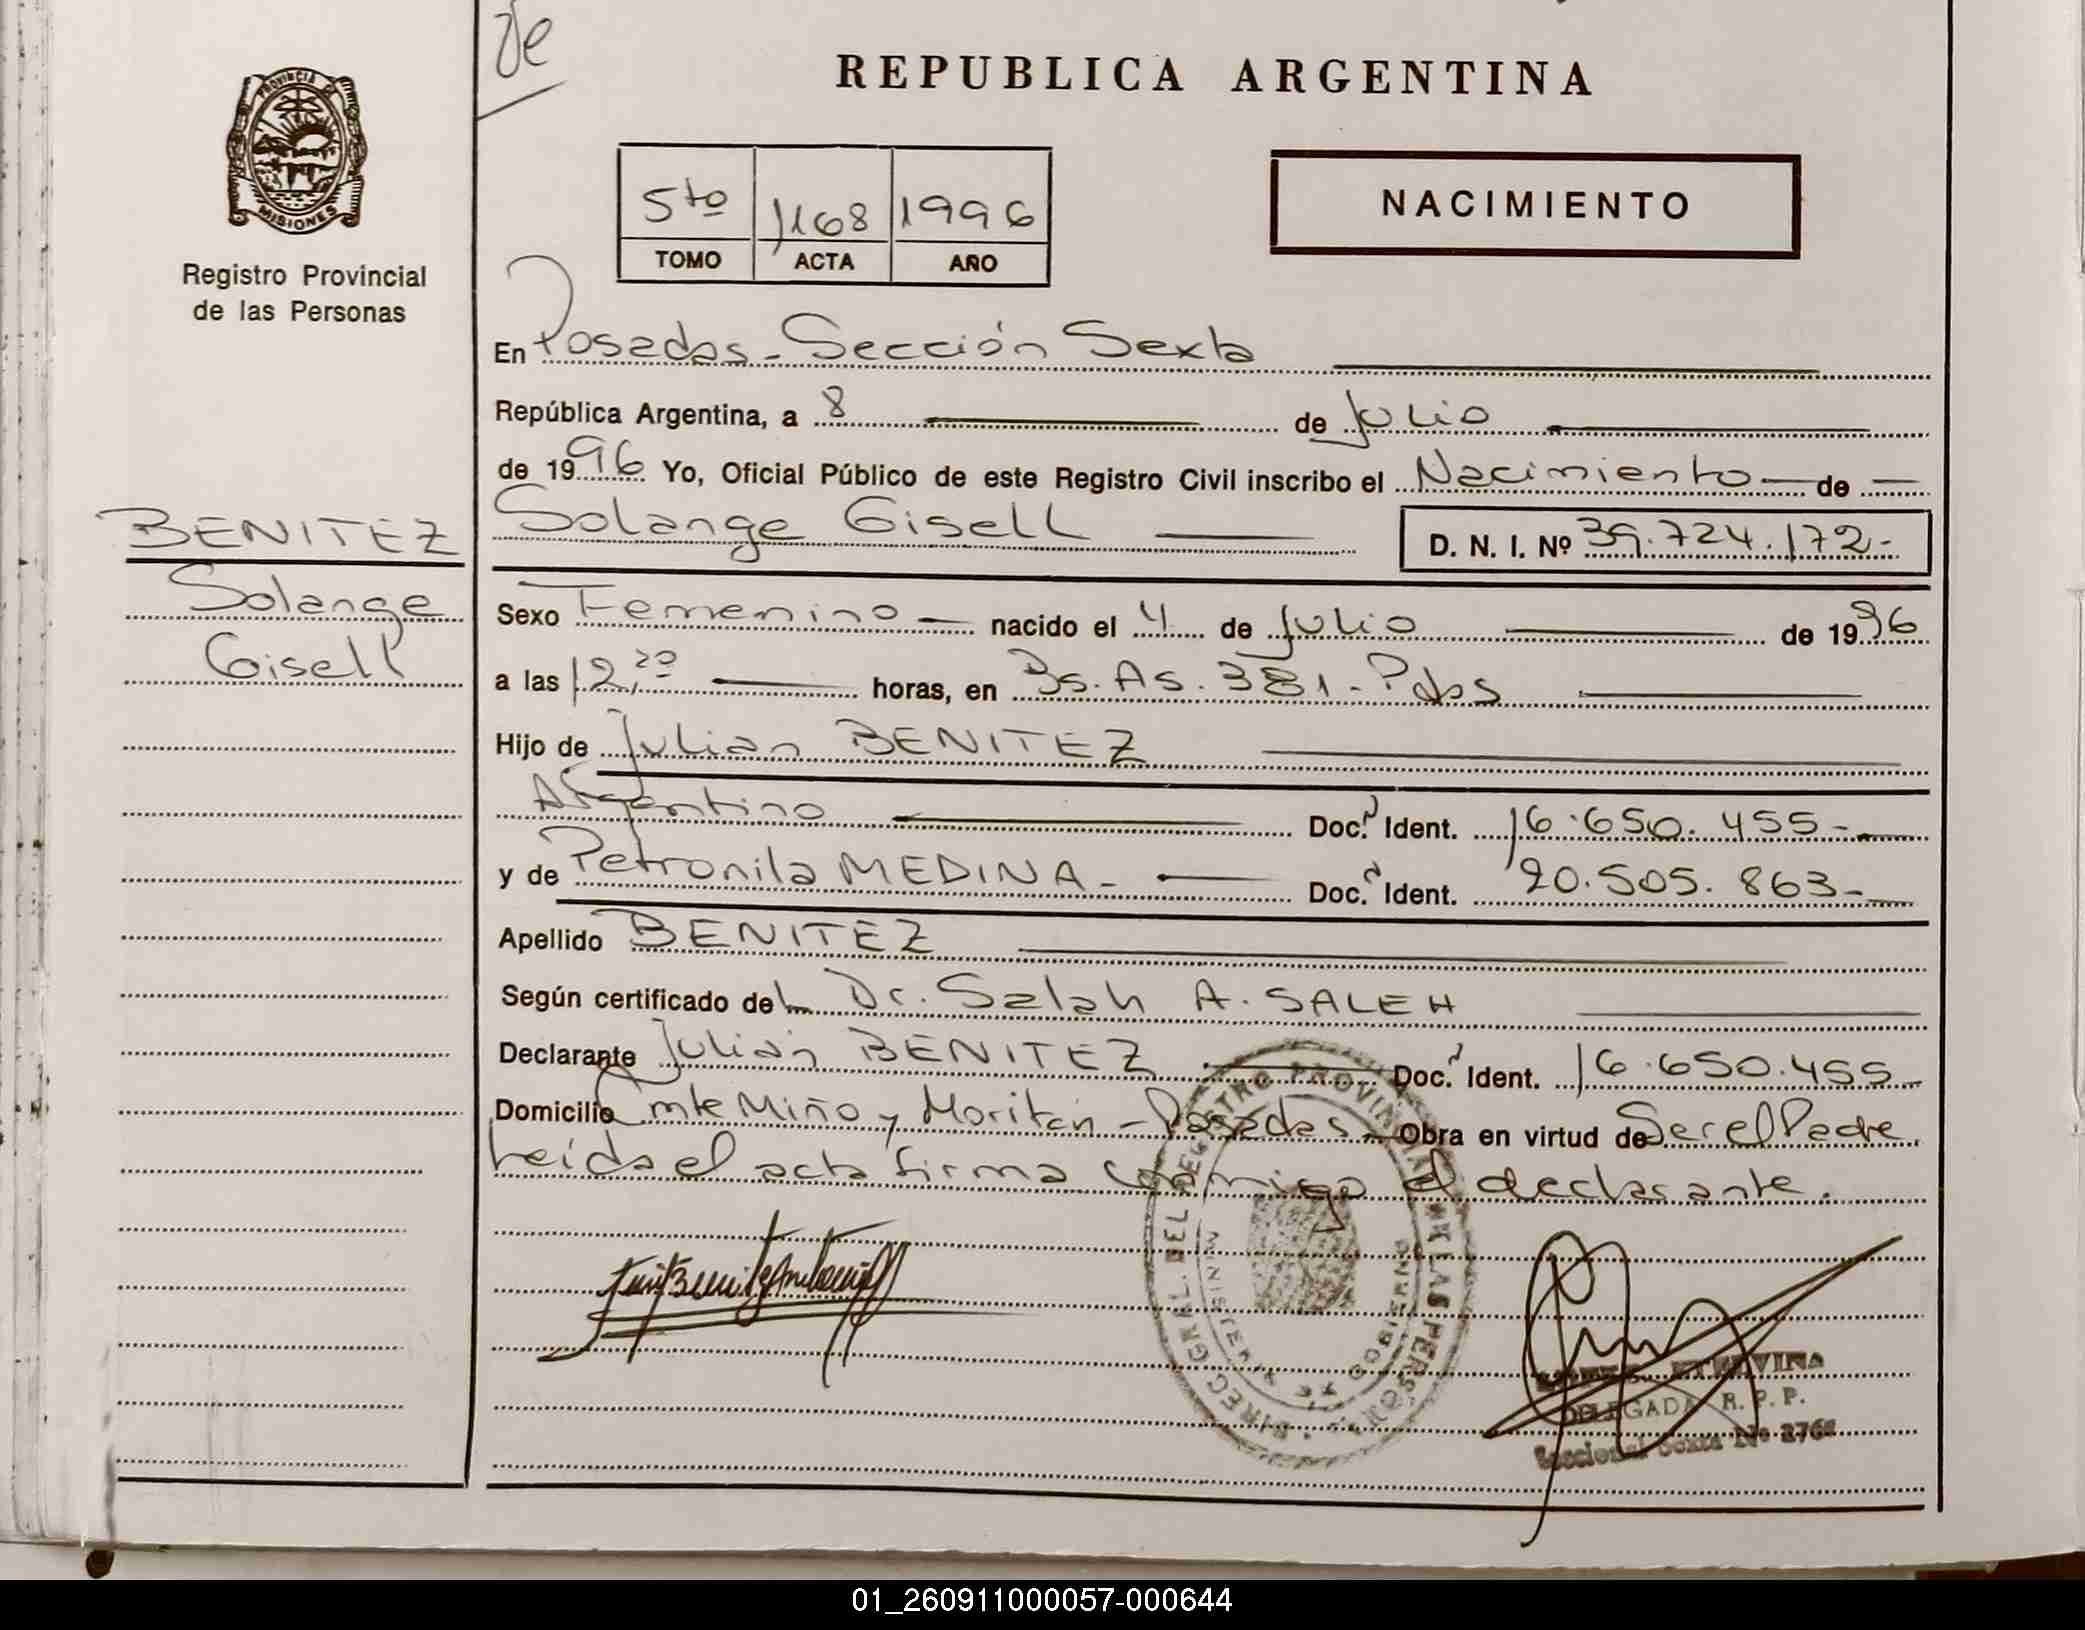 de
REPUBLICA ARGENTINA
PROVINCIA DE MISIONES
Registro Provincial
de las Personas
5to 1168 1996
TOMO ACTA AÑO
NACIMIENTO
En Posadas - Sección Sexta
República Argentina, a 8 de Julio
de 1996 Yo, Oficial Público de este Registro Civil inscribo el Nacimiento de
BENITEZ
Solange
Gisell
Solange Gisell D. N. I. Nº 39.724.172-
Sexo Femenino nacido el 4 de Julio de 1996
a las 12,20 horas, en Bs. As. 381 - Pdas
Hijo de Julian BENITEZ
Argentino Doc. Ident. 16.650.455-
y de Petronila MEDINA - Doc. Ident. 20.505.863-
Apellido BENITEZ
Según certificado del Dr. Salah A. SALEH
Declarante Julián BENITEZ Doc. Ident. 16.650.455
Domicilio Cmte Miño y Moritán - Posadas - Obra en virtud de Ser el Padre
Leída el acta firma conmigo el declarante.
DIREC. GRAL. DEL REGISTRO PROVINCIAL DE LAS PERSONAS
MINISTERIO DE GOBIERNO
ETELVINA
DELEGADA R. P. P.
Seccional Sexta Nº 276
01_260911000057-000644